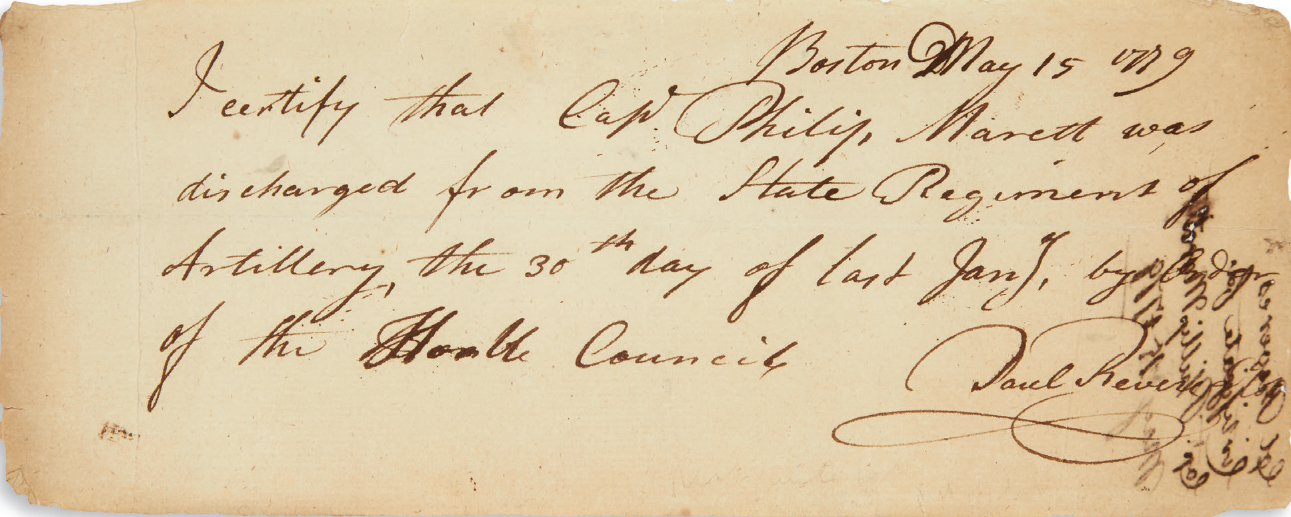 Boston May 15 1779
I certify that Capt. Philip Marett was
discharged from the State Regiment of
Artillery, the 30th day of last Jany, by Order
of the Honble Council
Paul Revere